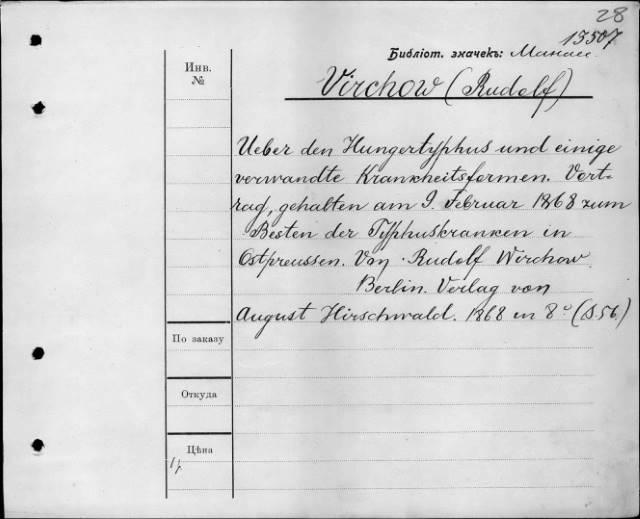 28
13507.
Библіот. значекъ: Манасс
Инв.
№
Virchow (Rudolf)
Ueber den Hungertyphus und einige
verwandte Krankheitsformen. Vort-
rag, gehalten am 9. Februar 1868 zum
Besten der Typhuskranken in
Ostpreussen. Von Rudolf Wirchow.
Berlin. Verlag von
August Hirschwald. 1868 in 8° (S 56)
По заказу
Откуда
Цѣна